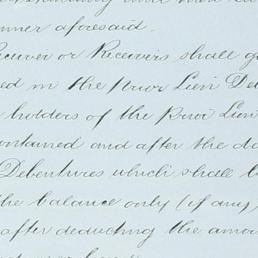 nner aforesaid.
eceiver or Receivers shall g
ed in the Prior Lien De
holders of the Prior Lien
ontained and after the da
Debentures which shall b
the balance only (if any)
after deducting the amou